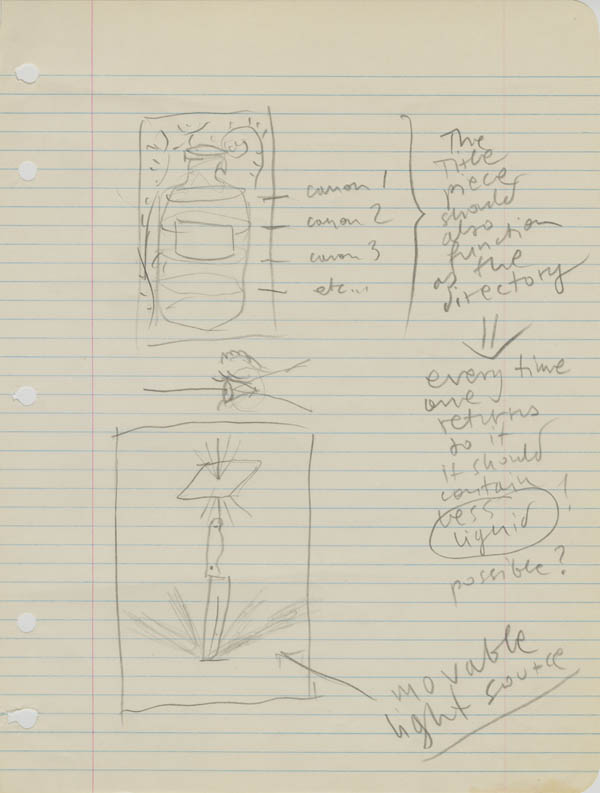 canon 1
canon 2
canon 3
etc...
The
Title
piece
should
also
function
as the
directory
every time
one
returns
to it
it should
contain
less
liquid !
possible?
movable
light source